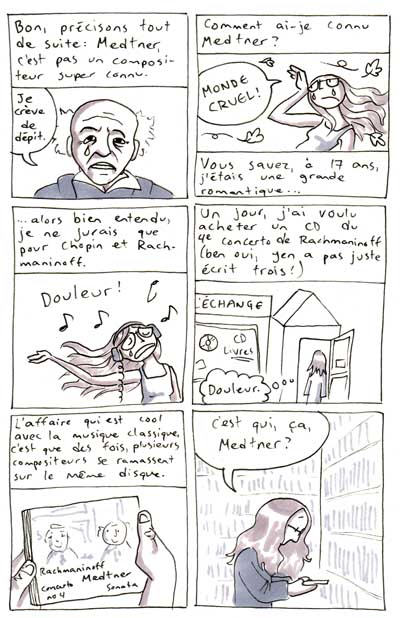 Bon, précisons tout
de suite: Medtner,
c'est pas un composi-
teur super connu.
Je
crève
de
dépit.
Comment ai-je connu
Medtner?
MONDE
CRUEL!
Vous savez, à 17 ans,
j'étais une grande
romantique...
...alors bien entendu,
je ne jurais que
pour Chopin et Rach-
maninoff.
Douleur!
Un jour, j'ai voulu
acheter un CD du
4e concerto de Rachmaninoff
(ben oui, y en a pas juste
écrit trois!)
L'ÉCHANGE
CD
Livres
Douleur.
L'affaire qui est cool
avec la musique classique,
c'est que des fois, plusieurs
compositeurs se ramassent
sur le même disque.
Rachmaninoff
Concerto
no 4
Medtner
Sonata
C'est qui, ça,
Medtner?